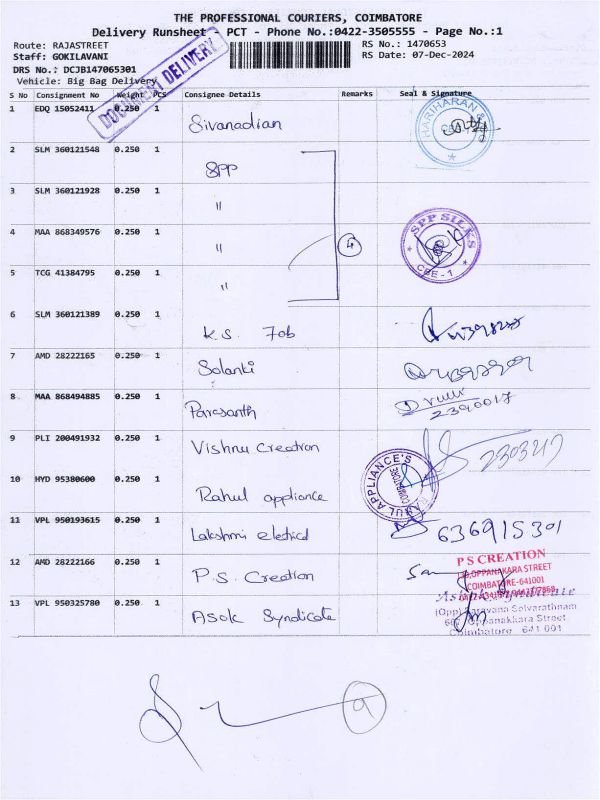 THE PROFESSIONAL COURIERS, COIMBATORE
Delivery Runsheet - PCT - Phone No.:0422-3505555 - Page No.:1
Route: RAJASTREET
RS No.: 1470653
Staff: GOKILAVANI
RS Date: 07-Dec-2024
DRS No.: DCJB147065301
Vehicle: Big Bag Delivery
DOCUMENT DELIVERY
S No Consignment No Weight PCS Consignee Details Remarks Seal & Signature
1 EDQ 15052411 0.250 1 Sivanadian
HARIHARAN &
2 SLM 360121548 0.250 1 SPP
3 SLM 360121928 0.250 1 "
4 MAA 868349576 0.250 1 " 4
SPP SILKS
CBE - 1
5 TCG 41384795 0.250 1 "
6 SLM 360121389 0.250 1 K.S. Fab
7 AMD 28222165 0.250 1 Solanki
8 MAA 868494885 0.250 1 Parasanth
2396017
9 PLI 200491932 0.250 1 Vishnu Creation
10 HYD 95380600 0.250 1 Rahul appliance
RAHUL APPLIANCE'S
COIMBATORE
11 VPL 950193615 0.250 1 Lakshmi electrical 636915301
12 AMD 28222166 0.250 1 P.S. Creation
P S CREATION
OPPANAKARA STREET
COIMBATORE-641001
13 VPL 950325780 0.250 1 Asok Syndicate
Asok Syndicate
(Opp) Saravana Selvarathnam
Oppanakkara Street
Coimbatore 641 001